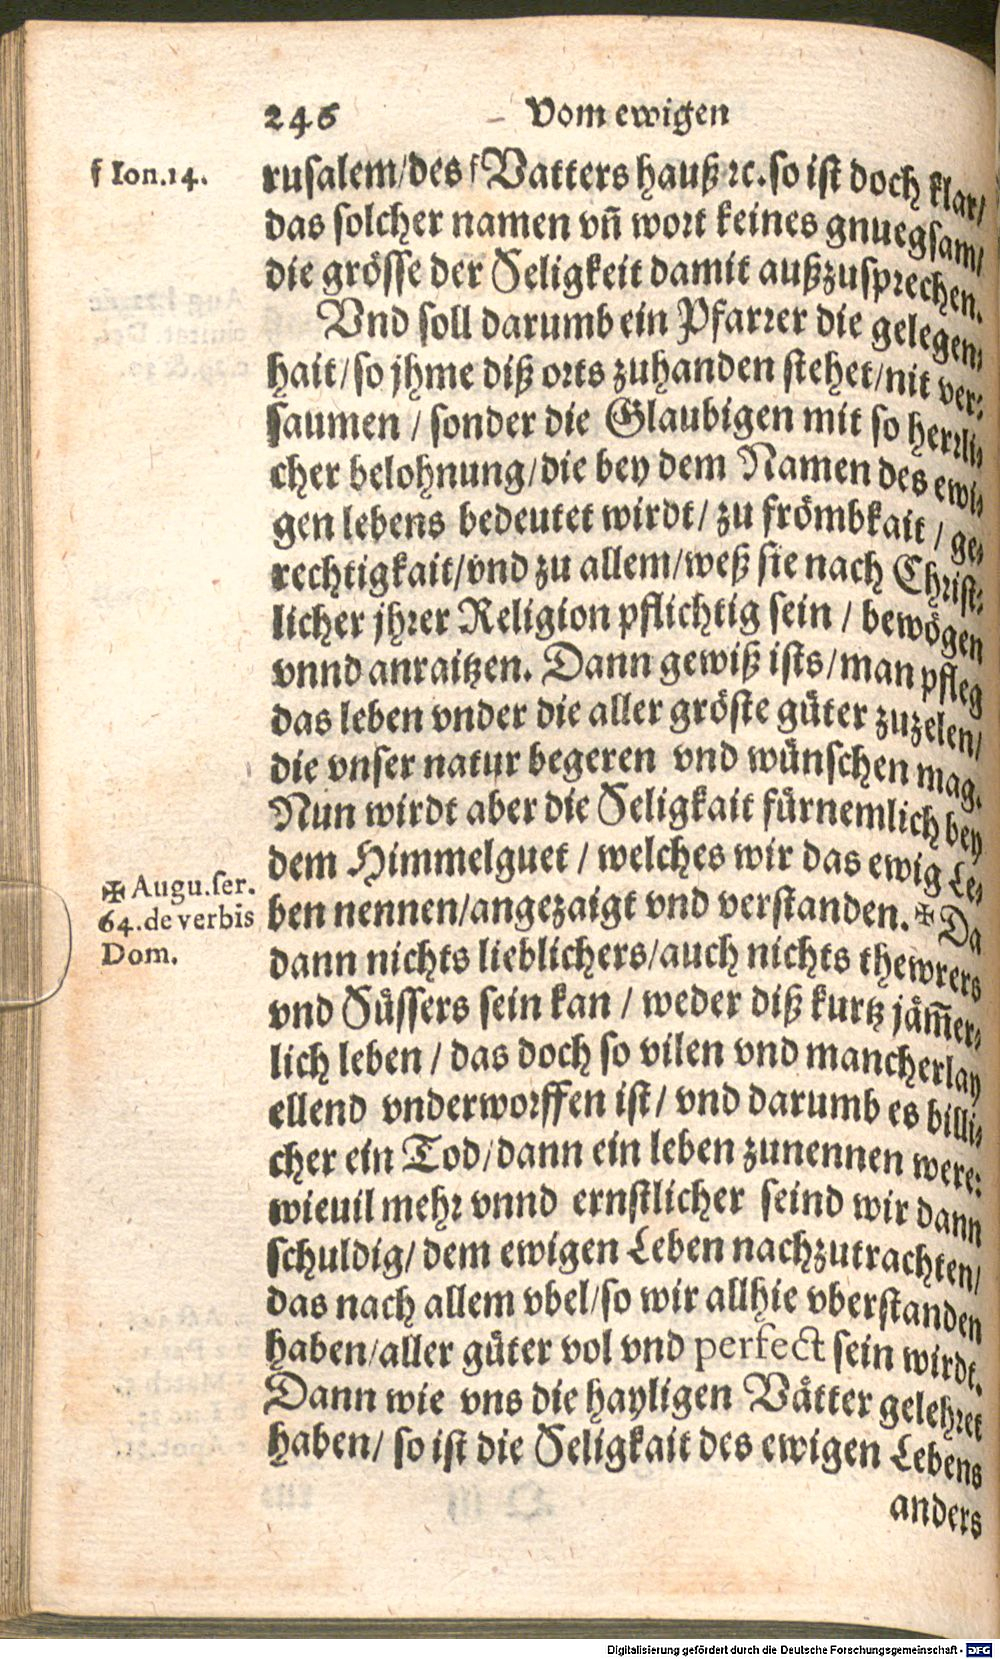 246 Vom ewigen
f Ion.14.
rusalem/des f Vatters hauß ꝛc. so ist doch klar/
das solcher namen vñ wort keines gnuegsam/
die grösse der Seligkeit damit außzusprechen.
Vnd soll darumb ein Pfarrer die gelegen⸗
hait/so jhme diß orts zuhanden stehet/nit ver⸗
saumen / sonder die Glaubigen mit so herrli⸗
cher belohnung/die bey dem Namen des ewi⸗
gen lebens bedeutet wirdt/ zu frömbkait / ge⸗
rechtigkait/vnd zu allem/weß sie nach Christ⸗
licher jhrer Religion pflichtig sein / bewögen
vnnd anraitzen. Dann gewiß ists/man pfleg
das leben vnder die aller gröste güter zuzelen/
die vnser natur begeren vnd wünschen mag.
Nun wirdt aber die Seligkait fürnemlich bey
dem Himmelguet / welches wir das ewig Le⸗
ben nennen/angezaigt vnd verstanden. ✠ Da
✠ Augu.ser.
64.de verbis
Dom.
dann nichts lieblichers/auch nichts thewrers
vnd Süssers sein kan / weder diß kurtz jäm̃er⸗
lich leben / das doch so vilen vnd mancherlay
ellend vnderworffen ist/ vnd darumb es billi⸗
cher ein Tod/dann ein leben zunennen were:
wieuil mehr vnnd ernstlicher seind wir dann
schuldig/ dem ewigen Leben nachzutrachten/
das nach allem vbel/so wir allhie vberstanden
haben/aller güter vol vnd perfect sein wirdt.
Dann wie vns die hayligen Vätter gelehret
haben/ so ist die Seligkait des ewigen Lebens
anders
Digitalisierung gefördert durch die Deutsche Forschungsgemeinschaft - DFG